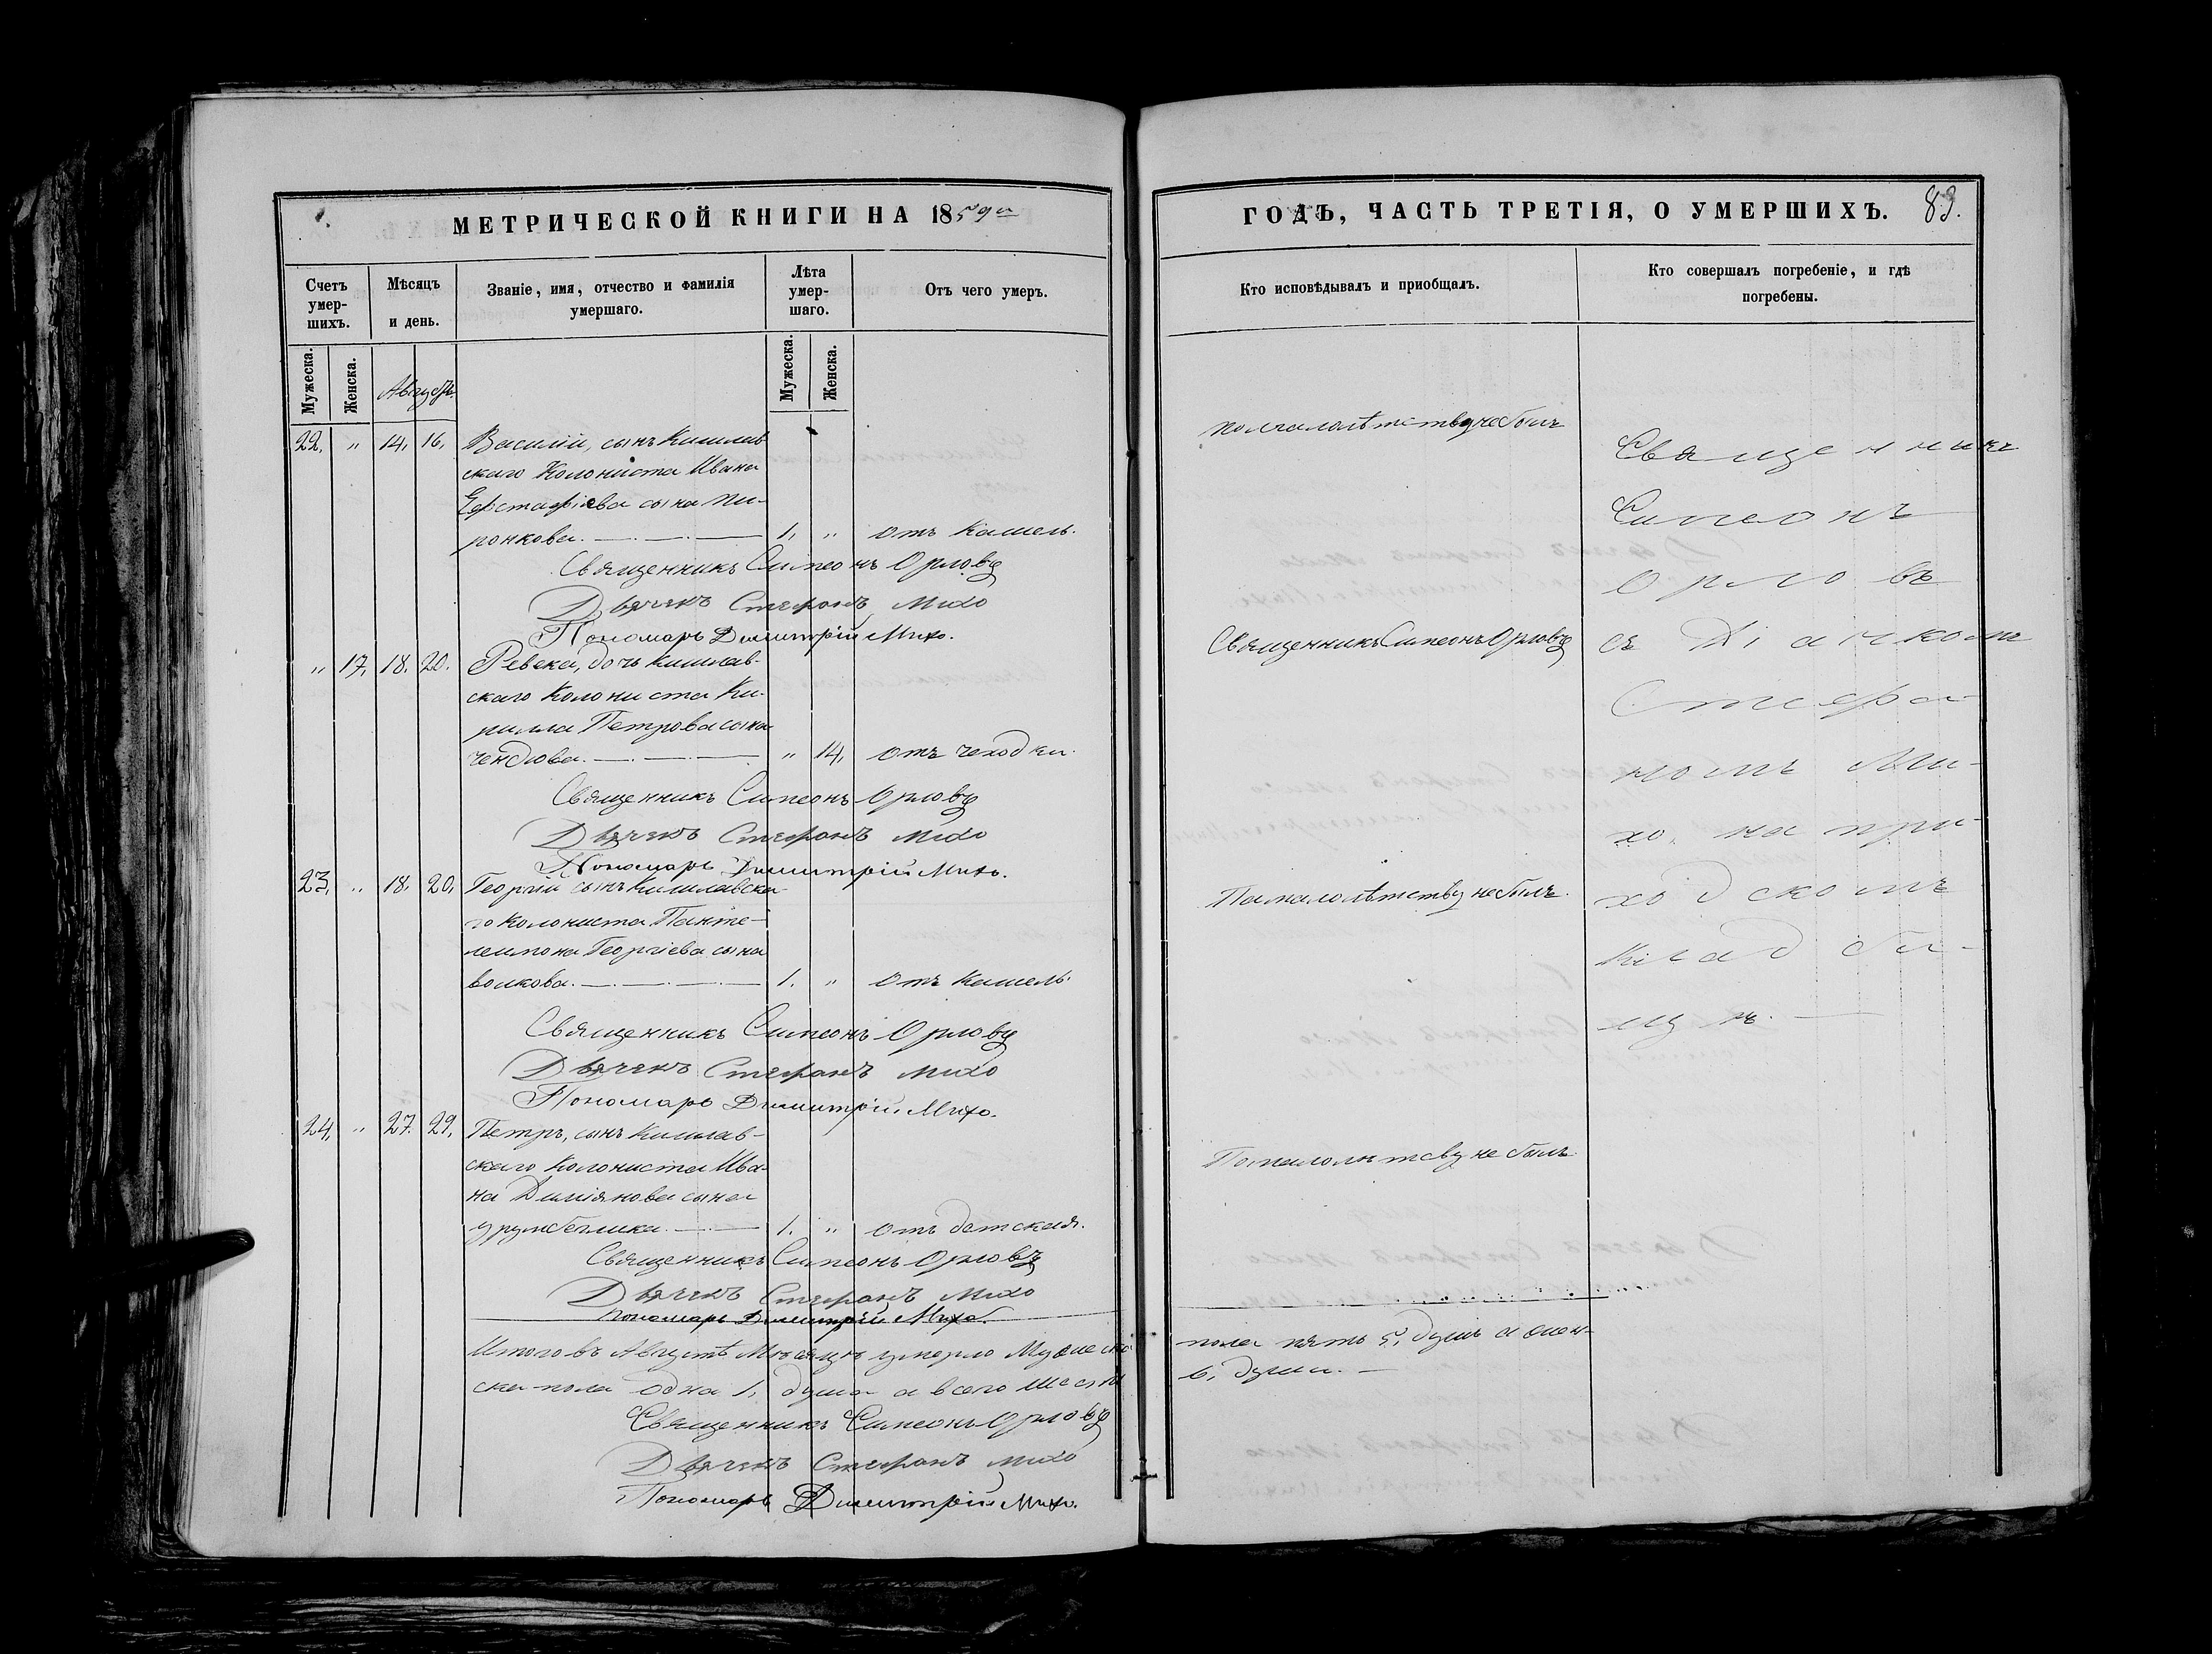 МЕТРИЧЕСКОЙ КНИГИ НА 1859й
Счетъ умер-шихъ.
Мѣсяцъ и день.
Званіе, имя, отчество и фамилія умершаго.
Лѣта умер-шаго.
Отъ чего умеръ.
Мужеска.
Женска.
Августъ
Мужеска.
Женска.
22. " 14. 16. Василій, сынъ
скаго Колониста Ивана
Евстафіева сына Пи-
ронкова. 1. " отъ кашель.
Священникъ Симеонъ Орловъ
Дьячекъ Стефанъ Михо
Пономарь Димитрій Михо.
" 17. 18. 20. Ревека, дочь
скаго Колониста Ки-
рилла Петрова сына
Чендова. " 14. отъ чеходки.
Священникъ Симеонъ Орловъ
Дьячекъ Стефанъ Михо
Пономарь Димитрій Михо.
23. " 18. 20. Георгій сынъ
го Колониста Панте-
леимона Георгіева сына
Волкова. 1. " отъ кашель.
Священникъ Симеонъ Орловъ
Дьячекъ Стефанъ Михо
Пономарь Димитрій Михо.
24. " 27. 29. Петръ, сынъ
скаго Колониста Ива-
на Диміянова сына
1. " отъ детская.
Священникъ Симеонъ Орловъ
Дьячекъ Стефанъ Михо
Пономарь Димитрій Михо.
Итого въ Августѣ Мѣсяцѣ умерло Мужеска
ска пола одна 1. душа а всего шесть
Священникъ Симеонъ Орловъ
Дьячекъ Стефанъ Михо
Пономарь Димитрій Михо.
ГОДЪ, ЧАСТЬ ТРЕТІЯ, О УМЕРШИХЪ. 83.
Кто исповѣдывалъ и пріобщалъ.
Кто совершалъ погребеніе, и гдѣ погребены.
по малолѣтству не былъ
Священникъ Симеонъ Орловъ
По малолѣтству не былъ.
По малолѣтству не былъ.
Священникъ
Симеонъ
Орловъ
съ Діачкомъ
Стефа-
номъ Ми-
хо, на при-
ходскомъ
кладби-
щѣ.
пола пять 5. душъ а жен-
6. души.